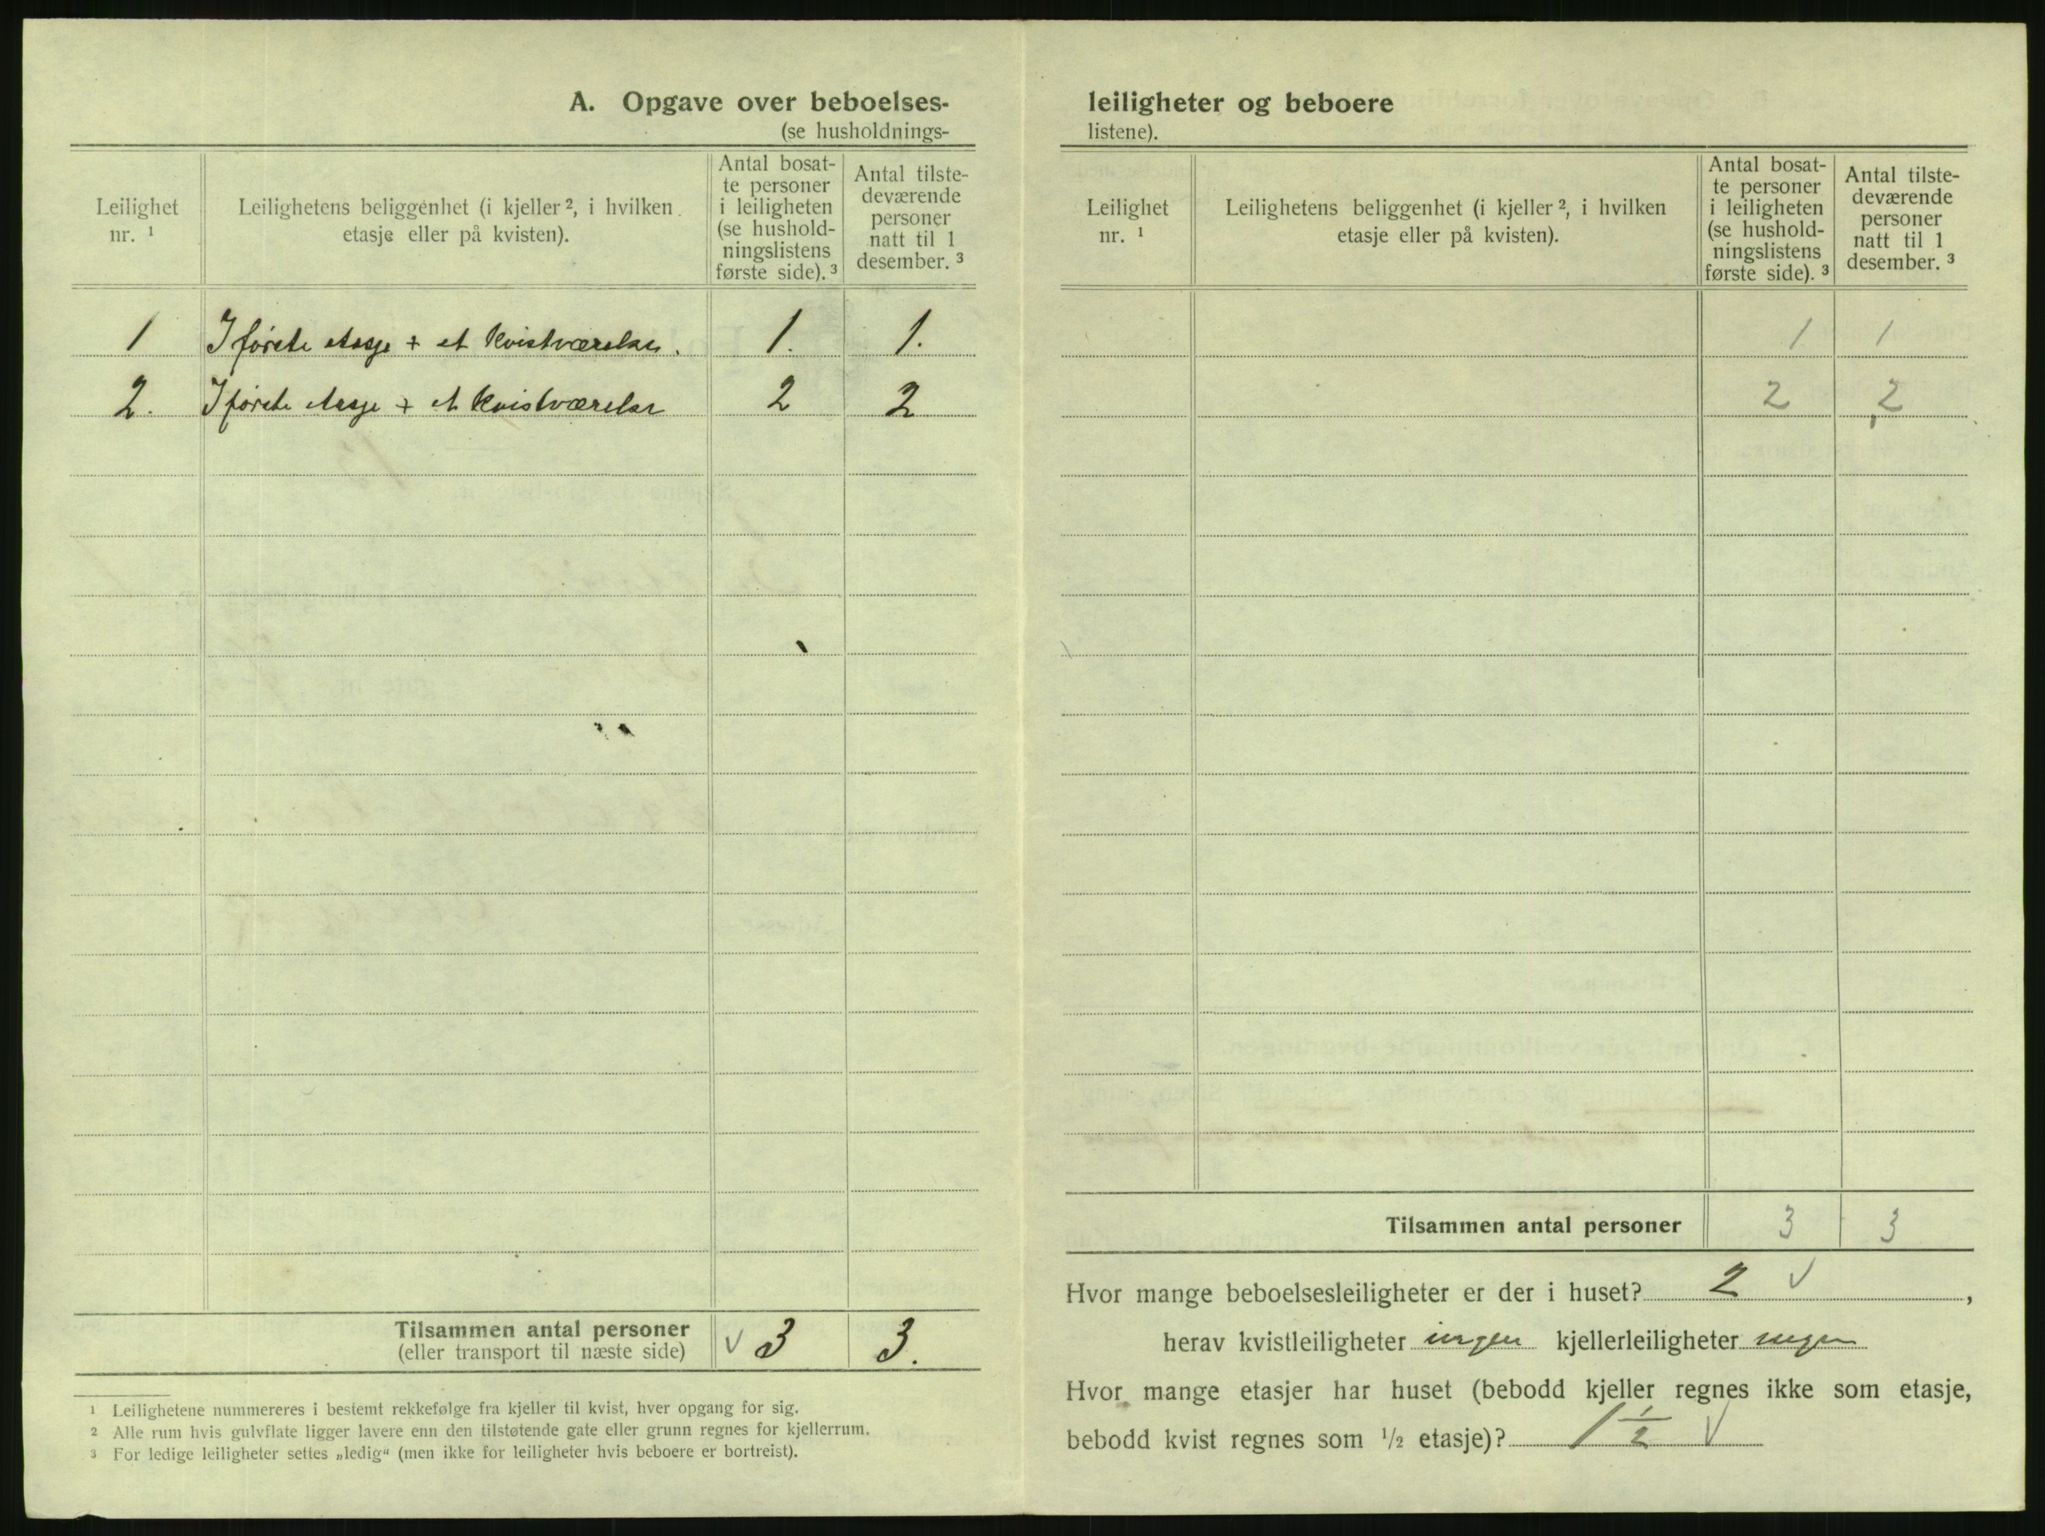 A. Opgave over beboelses-
(se husholdnings-
Leilighet
nr. 1
Leilighetens beliggenhet (i kjeller 2, i hvilken
etasje eller på kvisten).
Antal bosat-
te personer
i leiligheten
(se hushold-
ningslistens
første side). 3
Antal tilste-
deværende
personer
natt til 1
desember. 3
1 I første etasje + et kvistværelse. 1. 1.
2. I første etasje + et kvistværelse 2 2
Tilsammen antal personer
(eller transport til næste side)
3 3.
1 Leilighetene nummereres i bestemt rekkefølge fra kjeller til kvist, hver opgang for sig.
2 Alle rum hvis gulvflate ligger lavere enn den tilstøtende gate eller grunn regnes for kjellerrum.
3 For ledige leiligheter settes „ledig“ (men ikke for leiligheter hvis beboere er bortreist).
leiligheter og beboere
listene).
Leilighet
nr. 1
Leilighetens beliggenhet (i kjeller 2, i hvilken
etasje eller på kvisten).
Antal bosat-
te personer
i leiligheten
(se hushold-
ningslistens
første side). 3
Antal tilste-
deværende
personer
natt til 1
desember. 3
1 1
2 2
Tilsammen antal personer 3 3
Hvor mange beboelsesleiligheter er der i huset? 2,
herav kvistleiligheter ingen kjellerleiligheter ingen
Hvor mange etasjer har huset (bebodd kjeller regnes ikke som etasje,
bebodd kvist regnes som 1/2 etasje)? 1 1/2